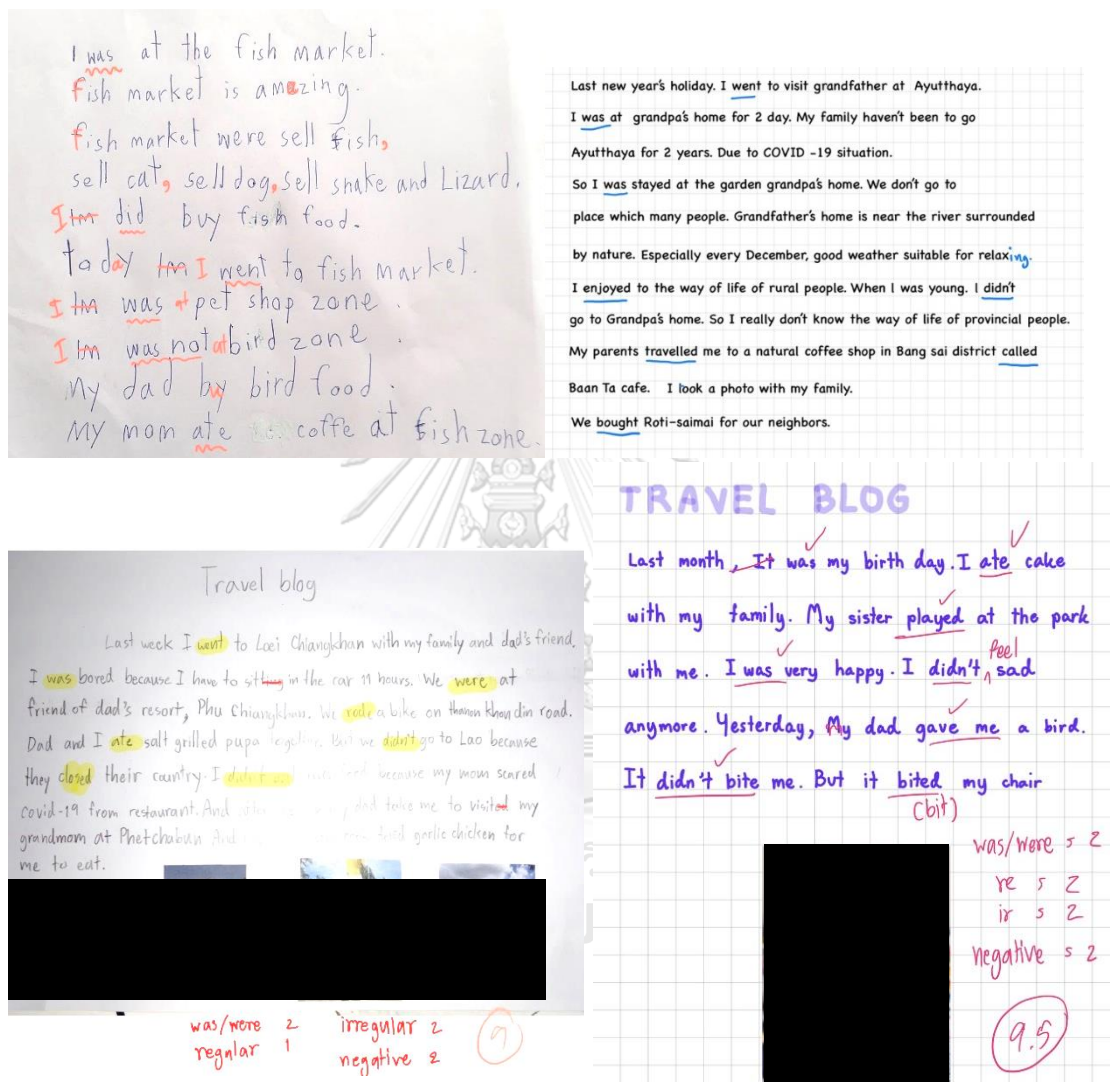 I was at the fish market.
fish market is amazing.
fish market were sell fish,
sell cat, sell dog, sell snake and Lizard.
I I'm did buy fish food.
today I'm I went to fish market.
I I'm was at pet shop zone.
I I'm was not at bird zone.
My dad buy bird food.
My mom ate coffe at fish zone.
Last new year's holiday. I went to visit grandfather at Ayutthaya.
I was at grandpa's home for 2 day. My family haven't been to go
Ayutthaya for 2 years. Due to COVID -19 situation.
So I was stayed at the garden grandpa's home. We don't go to
place which many people. Grandfather's home is near the river surrounded
by nature. Especially every December, good weather suitable for relaxing.
I enjoyed to the way of life of rural people. When I was young. I didn't
go to Grandpa's home. So I really don't know the way of life of provincial people.
My parents travelled me to a natural coffee shop in Bang sai district called
Baan Ta cafe. I took a photo with my family.
We bought Roti-saimai for our neighbors.
Travel blog
Last week I went to Loei Chiangkhan with my family and dad's friend.
I was bored because I have to sitting in the car 11 hours. We were at
friend of dad's resort, Phu Chiangkhan. We rode a bike on thanon khon din road.
Dad and I ate salt grilled pupa together. But we didn't go to Lao because
they closed their country. I didn't because my mom scared
covid-19 from restaurant. And dad take me to visited my
grandmom at Phetchabun And fried garlic chicken for
me to eat.
was/were 2 irregular 2
regular 1 negative 2
9
TRAVEL BLOG
Last month, It was my birth day. I ate cake
with my family. My sister played at the park
with me. I was very happy. I didn't feel sad
anymore. Yesterday, My dad gave me a bird.
It didn't bite me. But it bited my chair
(bit)
was/were s 2
re s 2
ir s 2
negative s 2
9.5